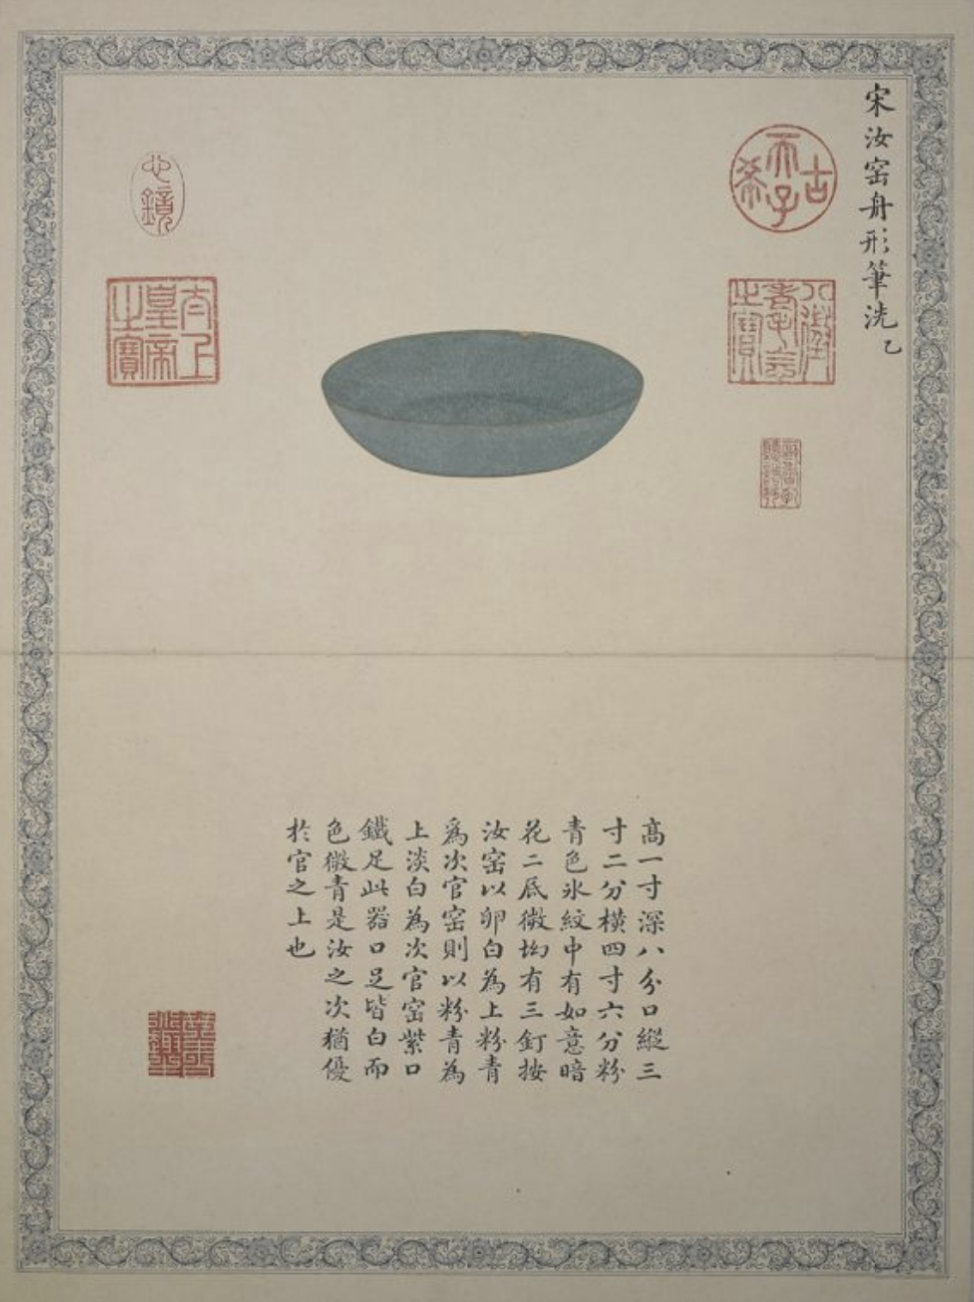 宋汝窑舟形筆洗乙
古
希
天子
八徵
耄念
之寶
心
鏡
太上
皇帝
之寶
高一寸深八分口縱三
寸二分橫四寸六分粉
青色氷紋中有如意暗
花二底微坳有三釘按
汝窑以卵白為上粉青
為次官窑則以粉青為
上淡白為次官窑紫口
鐵足此器口足皆白而
色微青是汝之次猶優
於官之上也